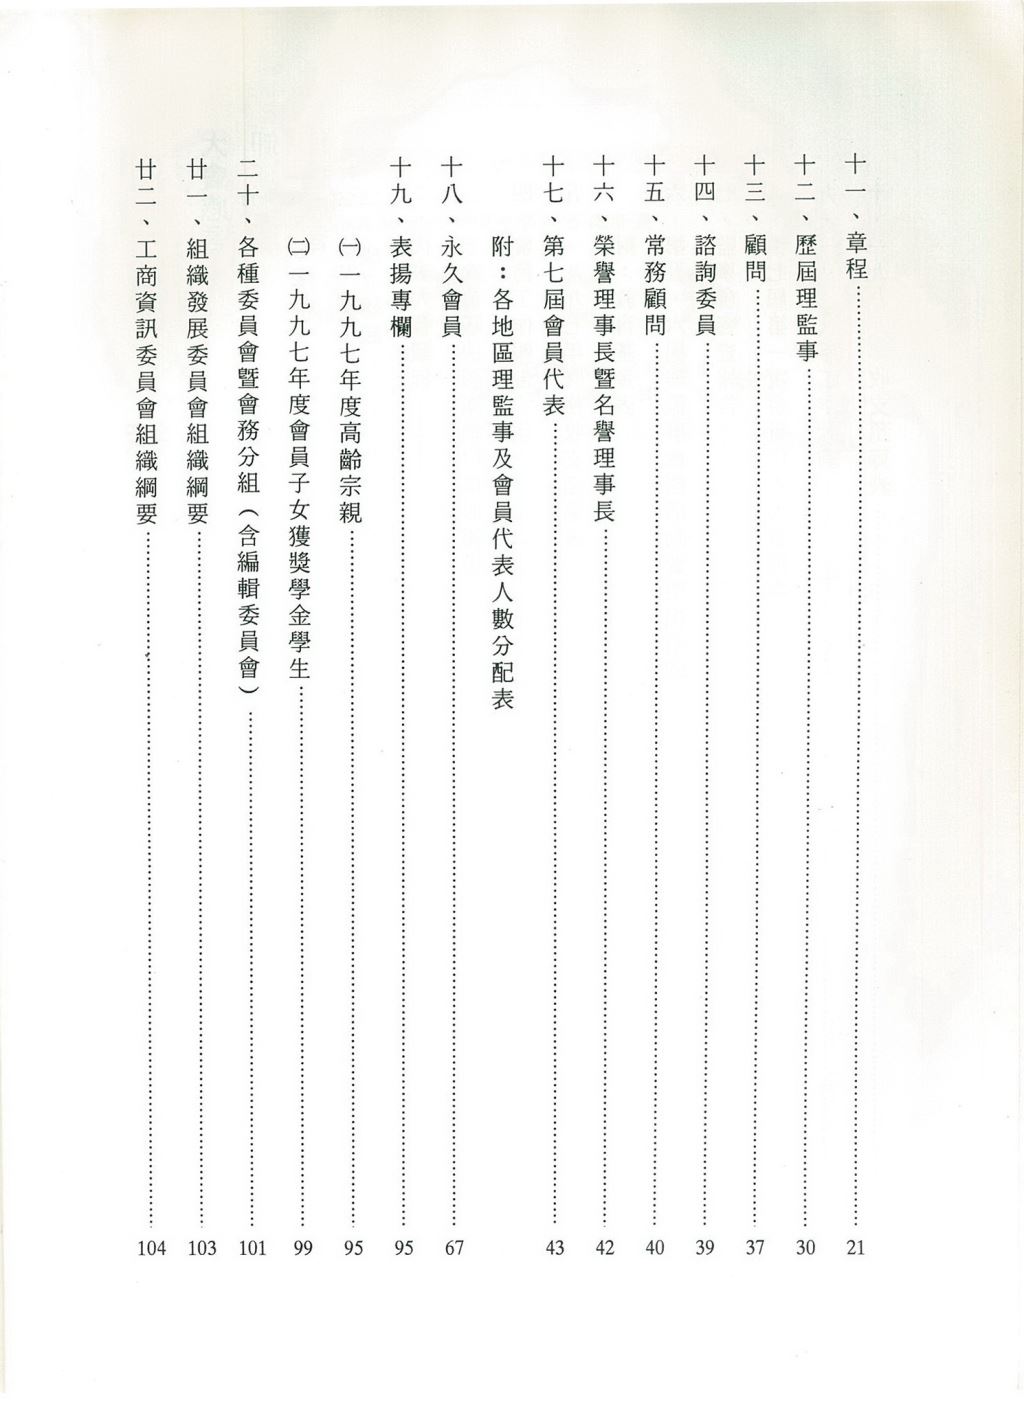 十一、章程⋯⋯21
十二、歷屆理監事⋯⋯30
十三、顧問⋯⋯37
十四、諮詢委員⋯⋯39
十五、常務顧問⋯⋯40
十六、榮譽理事長暨名譽理事長⋯⋯42
十七、第七屆會員代表⋯⋯43
附：各地區理監事及會員代表人數分配表
十八、永久會員⋯⋯67
十九、表揚專欄⋯⋯95
㈠一九九七年度高齡宗親⋯⋯95
㈡一九九七年度會員子女獲獎學金學生⋯⋯99
二十、各種委員會暨會務分組（含編輯委員會）⋯⋯101
廿一、組織發展委員會組織綱要⋯⋯103
廿二、工商資訊委員會組織綱要⋯⋯104